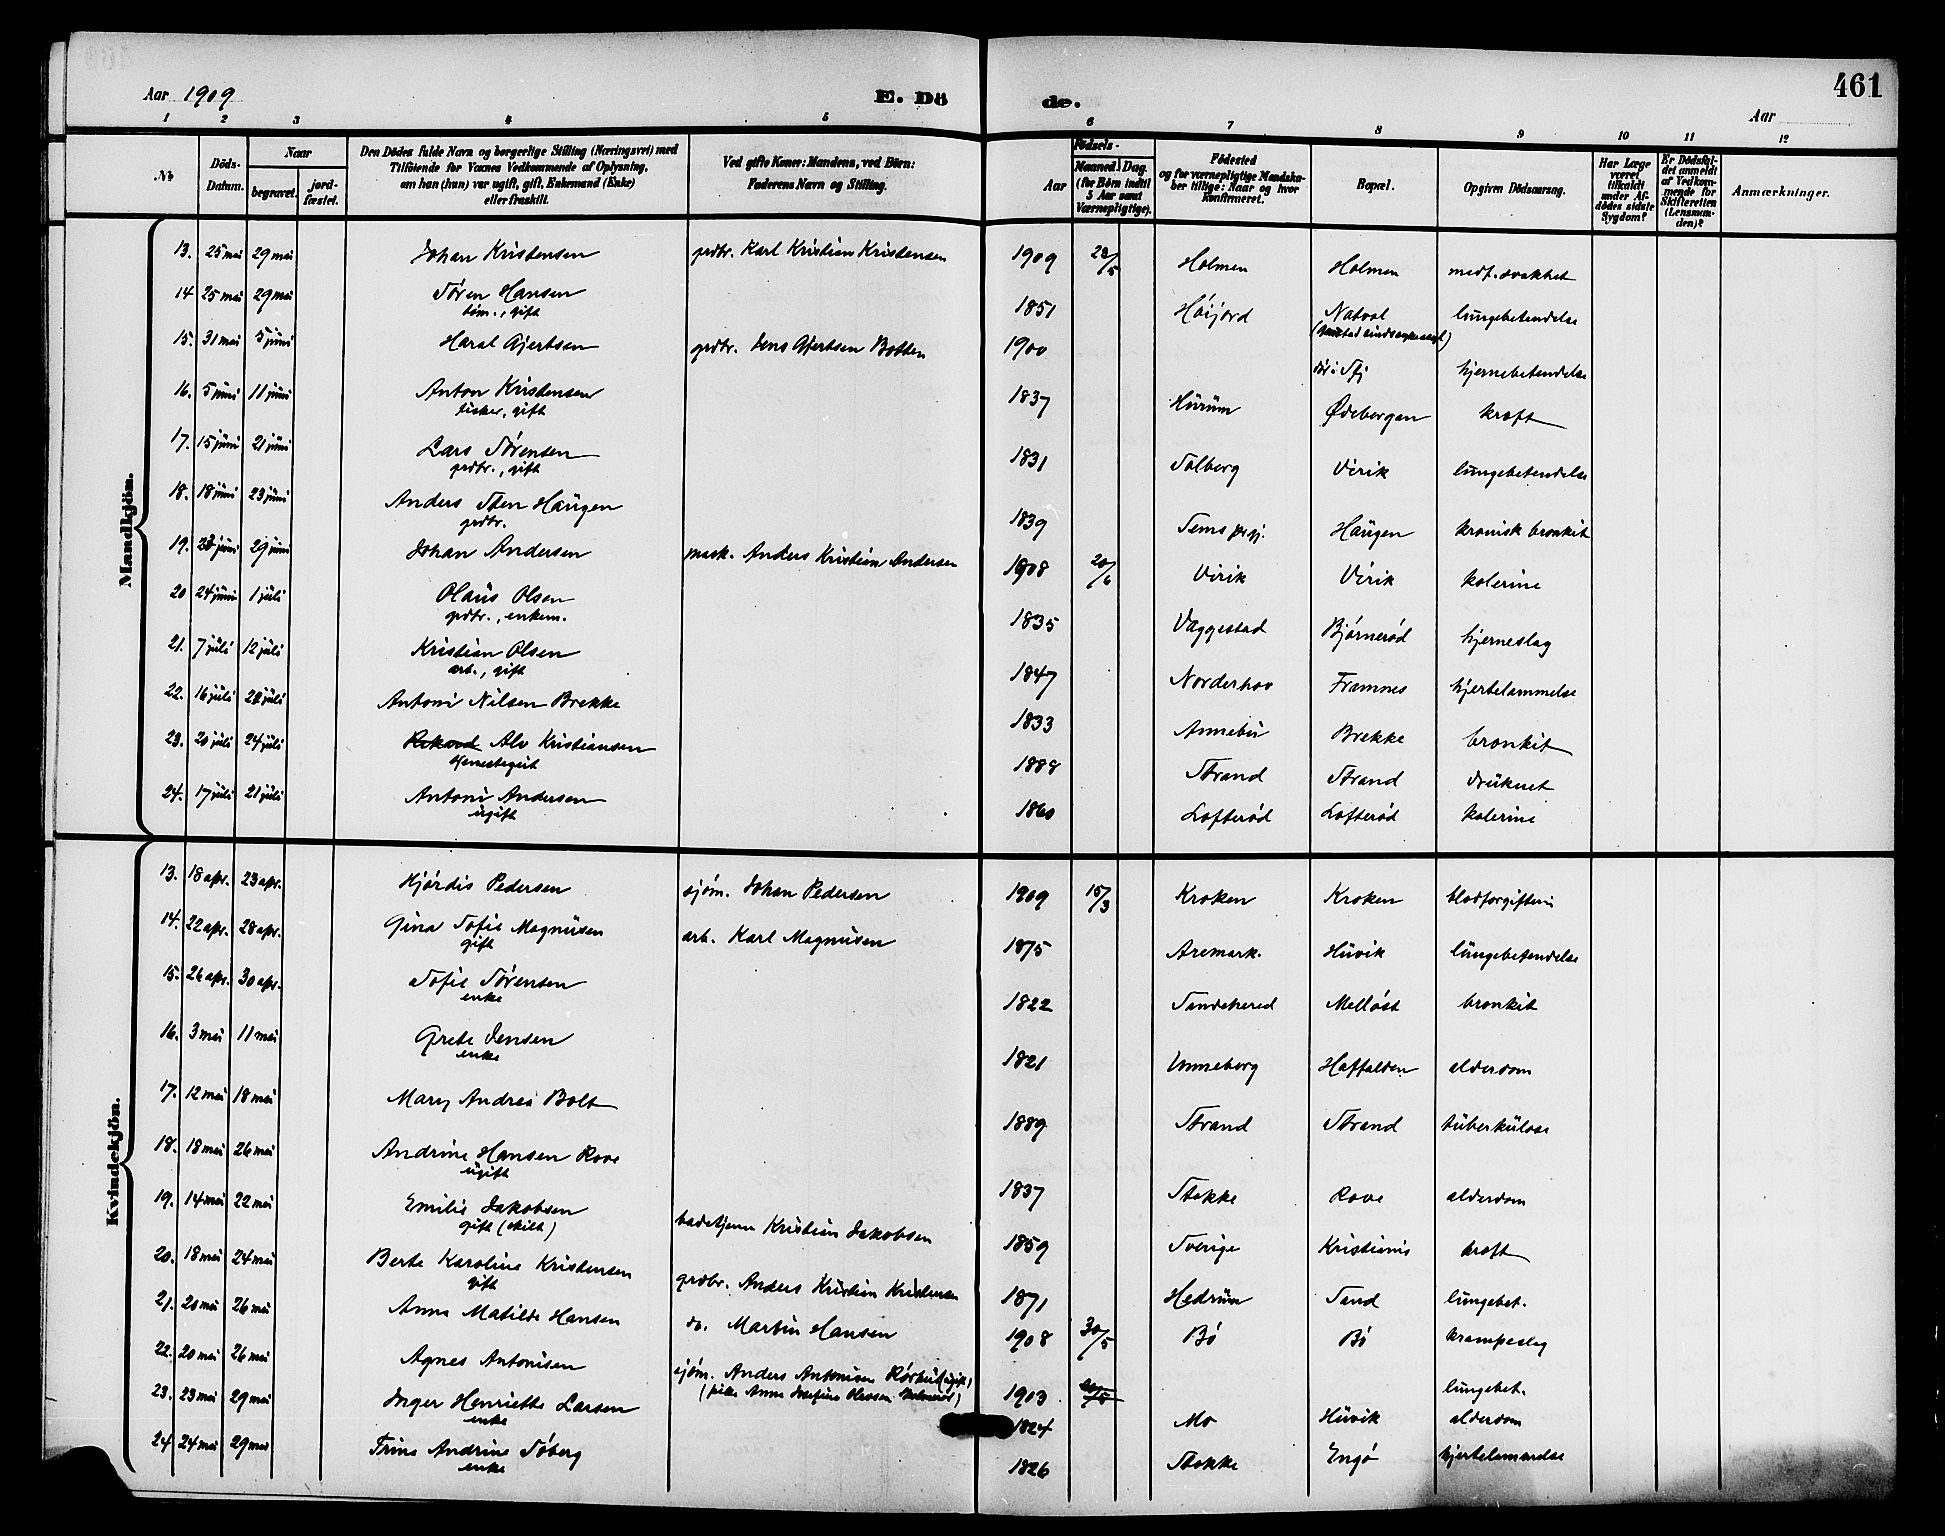 461
Aar 1909
E. Dö de.
Aar
1 2 3 4 5 6 7 8 9 10 11 12
№
Döds-Datum.
Naar
begravet.
jord-fæstet.
Den Dödes fulde Navn og borgerlige Stilling (Næringsvei) med Tilföiende for Voxnes Vedkommende af Oplysning, om han (hun) var ugift, gift, Enkemand (Enke) eller fraskilt.
Ved gifte Koner: Mandens, ved Börn: Faderens Navn og Stilling.
Födsels-
Aar
Maaned. Dag. (for Börn indtil 5 Aar samt Værnepligtige).
Födested og for værnepligtige Mandskaber tillige: Naar og hvor konfirmeret.
Bopæl.
Opgiven Dödsaarsag.
Har Læge været tilkaldt under Afdödes sidste Sygdom?
Er Dödsfaldet anmeldt af Vedkommende for Skifteretten (Lensmanden)?
Anmærkninger.
Mandkjön.
13. 25 mai 29 mai Johan Kristensen grdbr. Karl Kristian Kristensen 1909 22/5 Holmen Holmen medf. svakhet
14 25 mai 29 mai Søren Hansen 1851 Höijord Natvol lungebetendelse
tøm., gift
15. 31 mai 5 juni Haral Gjertsen grdbr. Jens Gjertsen Botten 1900 hjernebetendelse
16. 5 juni 11 juni Anton Kristensen 1837 Hurum Ødebergan kræft
fisker, gift
17. 15 juni 21 juni Lars Sørensen 1831 Solberg Virik lungebetendelse
grdbr., gift
18. 18 juni 23 juni Anders Sten Haugen 1839 Sems prgj. Haugen kronisk bronkit
grdbr.
19. 23 juni 29 juni Johan Andersen mask. Anders Kristian Andersen 1908 20/6 Virik Virik kolerine
20 24 juni 1 juli Olaus Olsen 1835 Vaggestad Bjørnerød hjerneslag
grdbr., enkem.
21. 7 juli 12 juli Kristian Olsen 1847 Norderhov Framnes hjertelammelse
arb., gift
22. 16 juli 22 juli Antoni Nilsen Brekke 1833 Annebu Brekke bronkit
23. 20 juli 24 juli Alv Kristiansen 1888 Strand Strand druknet
24. 17 juli 21 juli Antoni Andersen 1860 Lofterød Lofterød kolerine
ugift
Kvindekjön.
13. 18 apr. 23 apr. Hjørdis Pedersen sjøm. Johan Pedersen 1909 15/3 Kroken Kroken blodforgiftnin
14. 22 apr. 28 apr. Gina Sofie Magnusen arb. Karl Magnusen 1875 Aremark. Huvik lungebetendelse
gift
15. 26 apr. 30 apr. Sofie Sørensen 1822 Sandeherred Melløst bronkit
enke
16. 3 mai 11 mai Grete Jensen 1821 Unneberg Haffalden alderdom
enke
17. 12 mai 18 mai Mary Andrea Bolt 1889 Strand Strand tuberkulose
18. 18 mai 26 mai Andrine Hansen Rove 1837 Stokke Rove alderdom
ugift
19. 14 mai 22 mai Emilie Jakobsen badetjener Kristian Jakobsen 1859 Sverige Kristiania kræft
gift (skilt)
20. 18 mai 24 mai Berte Karoline Kristensen grdbr. Anders Kristian Kristensen 1871 Hedrum Sand lungebet.
gift
21. 20 mai 26 mai Anna Matilde Hansen do. Martin Hansen 1908 30/5 Bø Bø krampeslag
22. 20 mai 26 mai Agnes Antonisen sjøm. Anders Antonisen 1903 lungebet.
23. 23 mai 29 mai Inger Henriette Larsen 1824 Mo Huvik alderdom
enke
24 24 mai 29 mai Trine Andrine Søberg 1826 Stokke Engø hjertelammelse
enke